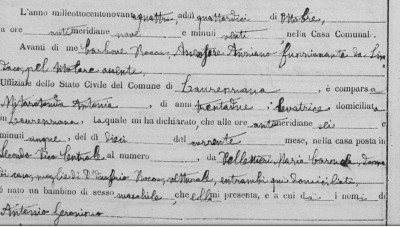 L'anno milleottocentonovantaquattro, addì quattordici di Ottobre,
a ore antimeridiane nove e minuti venti, nella Casa Comunale.
Avanti di me Carbone Rocco, Assessore Anziano funzionante da Sin
daco, pel titolare assente,
Uffiziale dello Stato Civile del Comune di Laurenzana, è comparsa
Mitarotonda Antonia, di anni trentadue, levatrice domiciliata
in Laurenzana, la quale mi ha dichiarato che alle ore antimeridiane sei e
minuti cinque, del dì dieci del corrente mese, nella casa posta in
Secondo Vico Centrale al numero , da Pellettieri Maria Carmela, donna
di casa, moglie di Rocco, vetturale, entrambi qui domiciliati,
è nato un bambino di sesso maschile che ella mi presenta, e a cui dà i nomi di
Antonio Geronimo